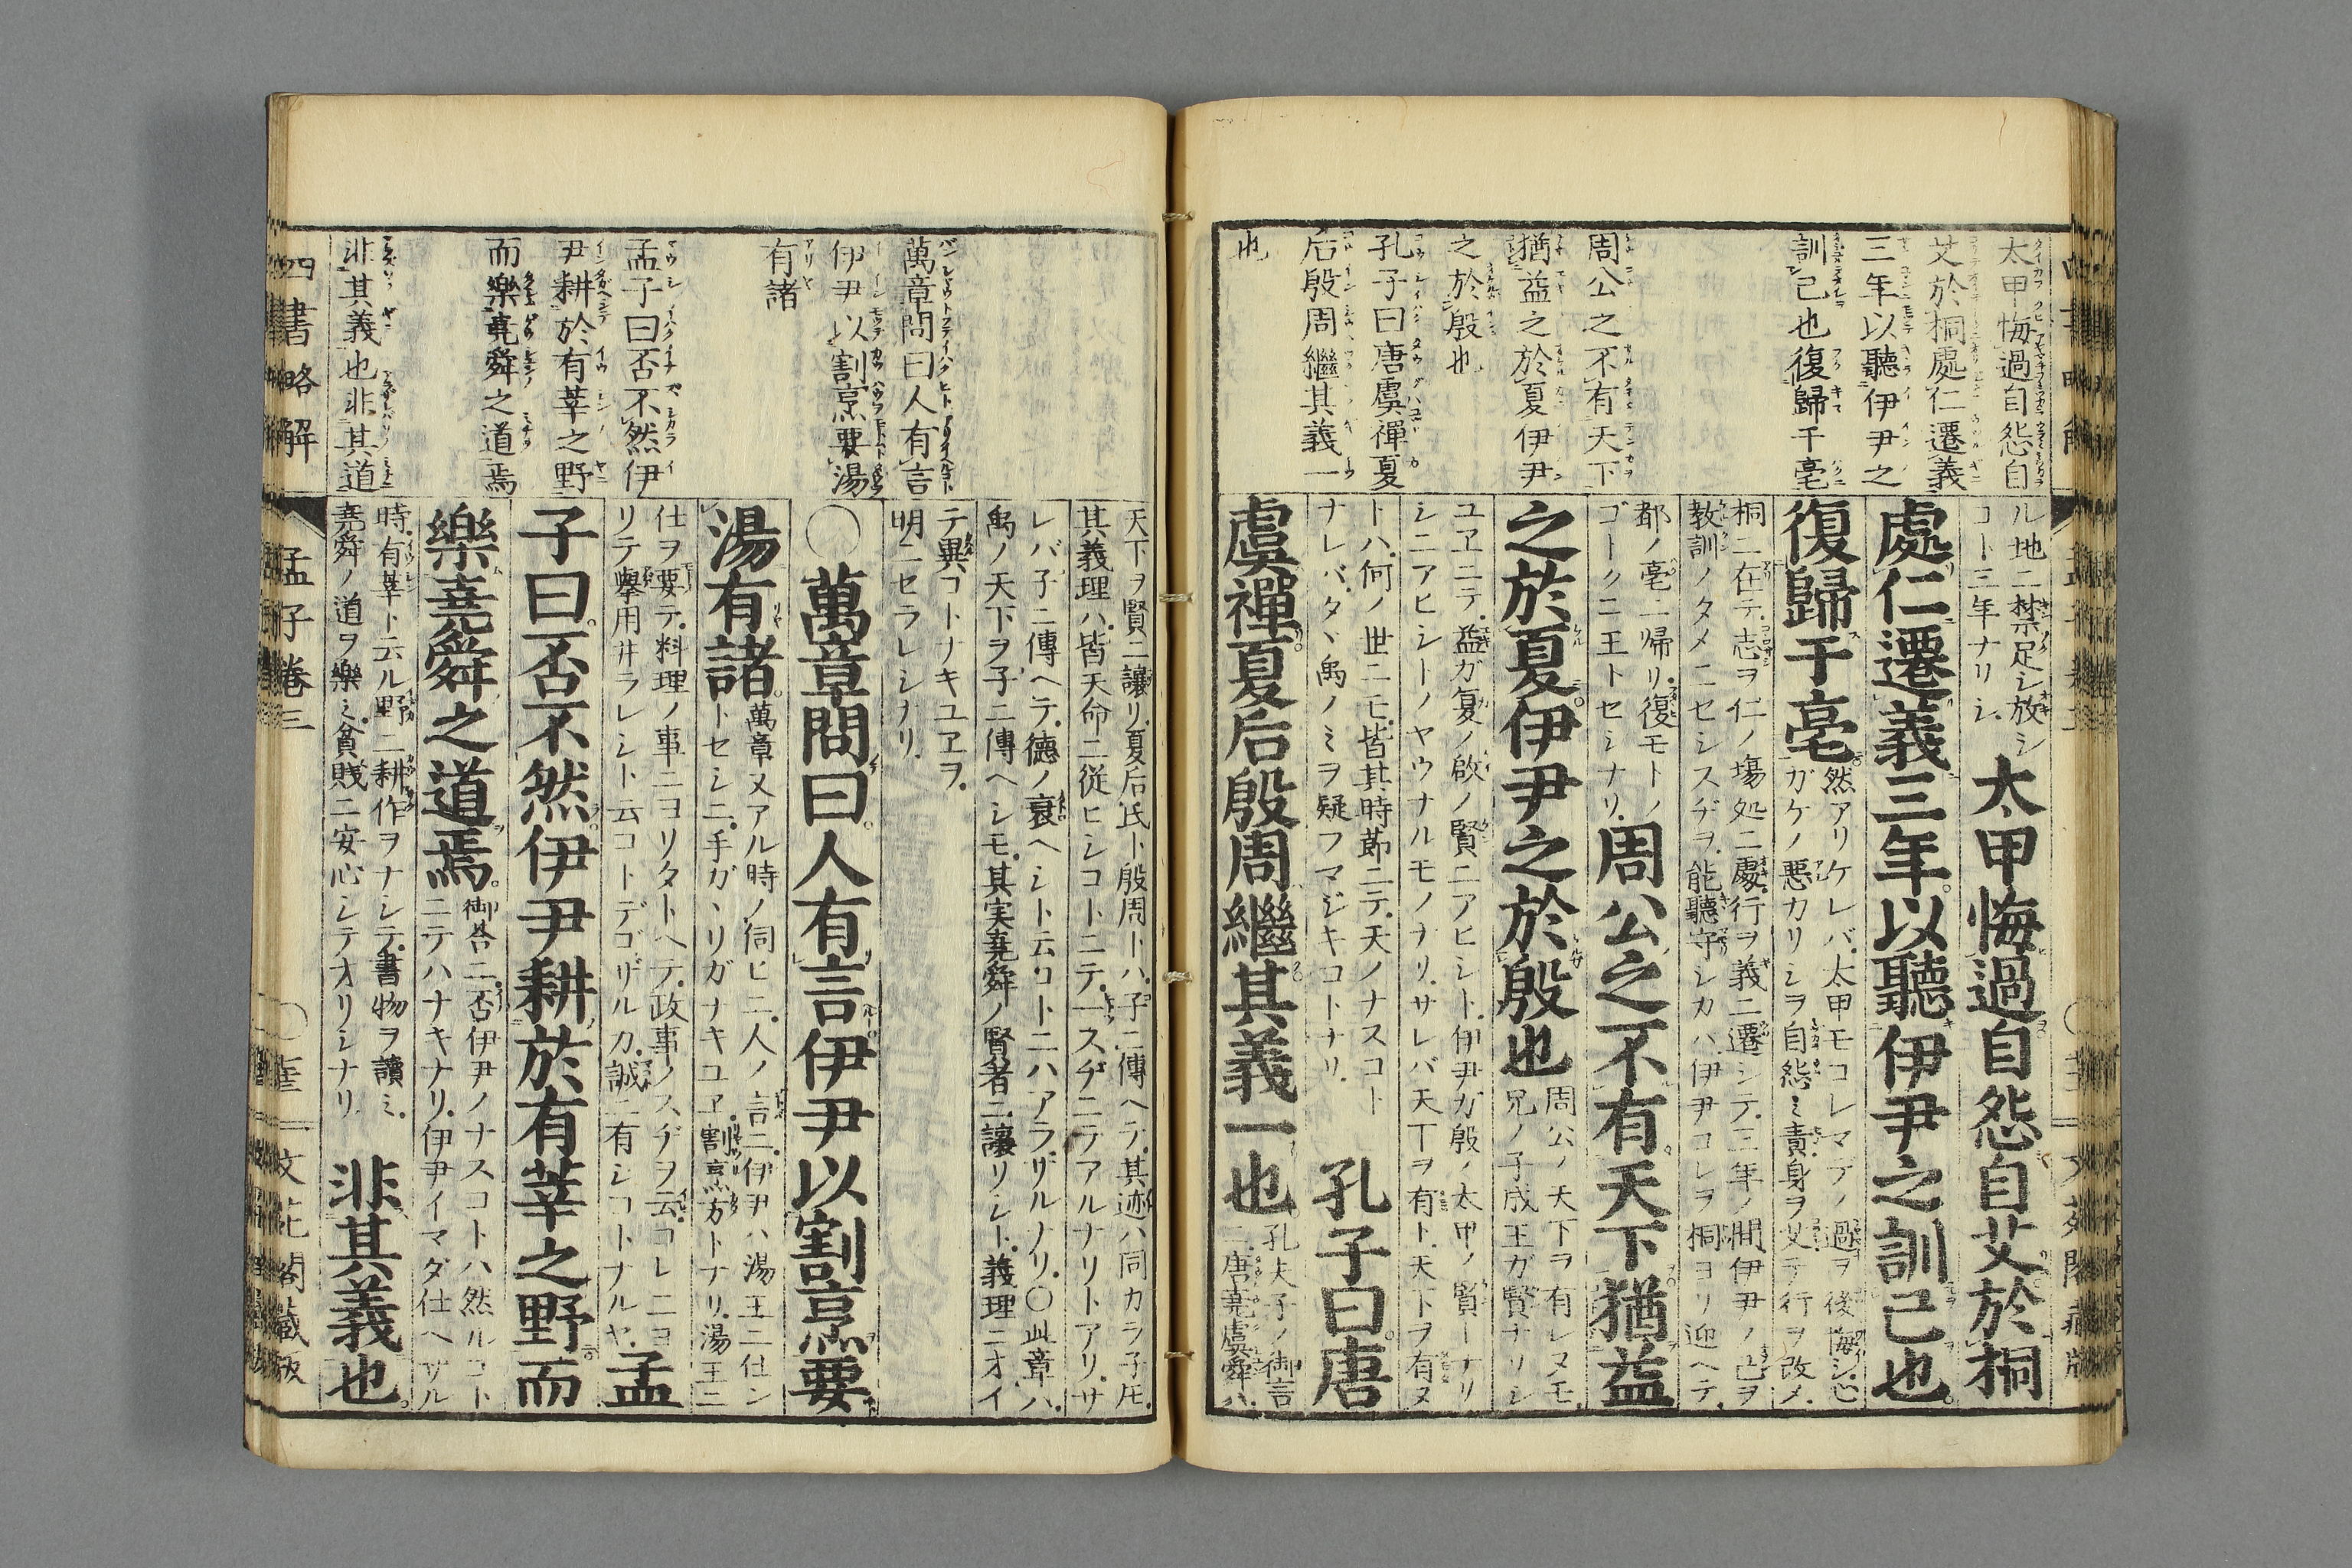 太甲悔過自怨自
艾於桐處仁遷義
三年以聽伊尹之
訓己也復歸于亳
周公之不有天下
猶益之於夏伊尹
之於殷也
孔子曰唐虞禪夏
后殷周繼其義一
也
ル地ニ禁足シ放シ
コト三年ナリシ
太甲悔過自怨自艾於桐
處仁遷義三年以聽伊尹之訓己也
復歸于亳
然アリケレバ太甲モコレマデノ過ヲ後悔シ心
ガケノ悪カリシヲ自怨ミ責身ヲ艾テ行ヲ改メ
桐ニ在テ志ヲ仁ノ塲処ニ處行ヲ義ニ遷シテ三年ノ間伊尹ノ己ヲ
教訓ノタメニセシスヂヲ能聽守シカバ伊尹コレヲ桐ヨリ迎ヘテ
都ノ亳ニ帰リ復モトノ
ゴトクニ王トセシナリ
周公之不有天下猶益
之於夏伊尹之於殷也
周公ノ天下ヲ有レヌモ
兄ノ子成王ガ賢ナリシ
ユヱニテ益ガ夏ノ啟ノ賢ニアヒシト伊尹ガ殷ノ太甲ノ賢ーナリ
シニアヒシトノヤウナルモノナリサレバ天下ヲ有ト天下ヲ有ヌ
トハ何ノ世ニモ皆其時節ニテ天ノナスコト
ナレバタヾ禹ノミヲ疑フマジキコトナリ
孔子曰唐
虞禪夏后殷周繼其義一也
孔夫子ノ御言
ニ唐堯虞舜ハ
萬章問曰人有言
伊尹以割烹要湯
有諸
孟子曰否不然伊
尹耕於有莘之野
而樂堯舜之道焉
非其義也非其道
天下ヲ賢ニ讓リ夏后氏ト殷周トハ子ニ傳ヘテ其迹ハ同カラ子𪜈
其義理ハ皆天命ニ従ヒシコトニテ一スヂニテアルナリトアリサ
レバ子ニ傳ヘテ德ノ衰ヘシト云コトニハアラザルナリ〇此章ハ
禹ノ天下ヲ子ニ傳ヘシモ其実堯舜ノ賢者ニ讓リシト義理ニオイ
テ異コトナキユヱヲ
明ニセラレシナリ
〇萬章問曰人有言伊尹以割烹要
湯有諸
萬章又アル時ノ伺ヒニ人ノ言ニ伊尹ハ湯王ニ仕ン
トセシニ手ガヽリガナキユヱ割烹方トナリ湯王ニ
仕ヲ要テ料理ノ事ニヨリタトヘテ政事ノスヂヲ云コレニヨ
リテ擧用井ラレシト云コトデゴザルカ誠ニ有シコトナルヤ
孟
子曰否不然伊尹耕於有莘之野而
樂堯舜之道焉
御荅ニ否伊尹ノナスコトハ然ルコト
ニテハナキナリ伊尹イマダ仕ヘザル
時有莘ト云ル野ニ耕作ヲナシテ書物ヲ讀ミ
堯舜ノ道ヲ樂ミ貧賎ニ安心シテオリシナリ
非其義也
四書略解
孟子卷三
文苑閣藏版